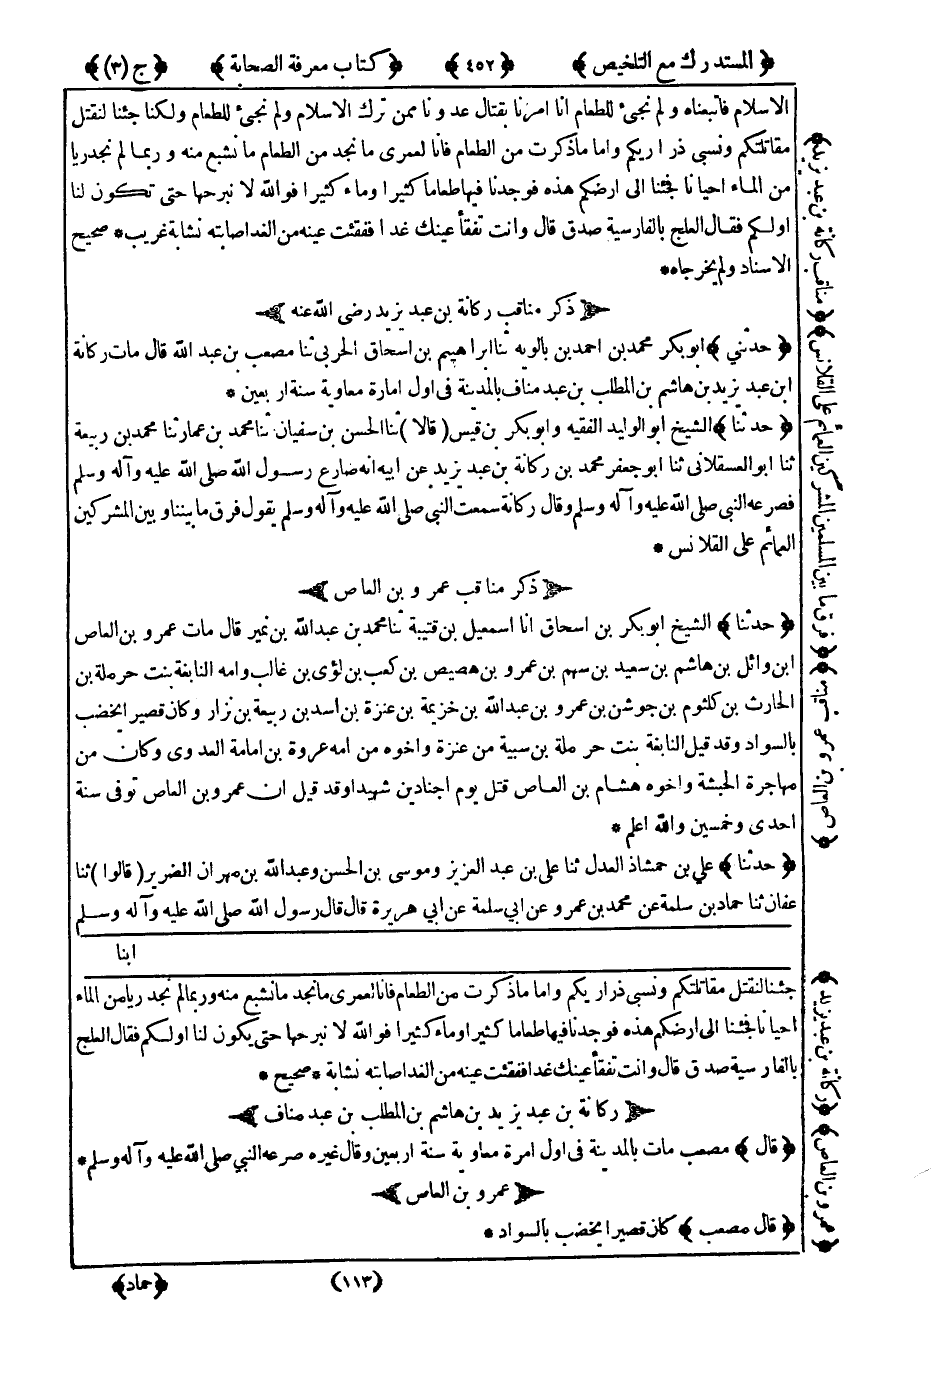 ﴿ المستدرك مع التلخيص ﴾ ﴿ ٤٥٢ ﴾ ﴿ كتاب معرفة الصحابة ﴾ ﴿ ج (٣) ﴾
الاسلام فاتبعناه ولم نجئ للطعام انا امرنا بقتال عدونا ممن ترك الاسلام ولم نجئ للطعام ولكنا جئنا لنقتل
مقاتلتكم ونسبي ذراريكم واما ماذكرت من الطعام فانا لعمرى مانجد من الطعام ما نشبع منه وربما لم نجد ريا
من الماء احيانا فجئنا الى ارضكم هذه فوجدنا فيها طعاما كثيرا وماء كثيرا فوالله لا نبرحها حتى تكون لنا
اولكم فقال العلج بالفارسية صدق قال وانت تفقأ عينك غدا ففقئت عينه من الغد اصابته نشابة غريب * صحيح
الاسناد ولم يخرجاه *
ذكر مناقب ركانة بن عبد يزيد رضى الله عنه
﴿ حدثني ﴾ ابوبكر محمد بن احمد بن بالويه ثنا ابراهيم بن اسحاق الحربى ثنا مصعب بن عبد الله قال مات ركانة
ابن عبد يزيد بن هاشم بن المطلب بن عبد مناف بالمدينة فى اول امارة معاوية سنة اربعين *
﴿ حدثنا ﴾ الشيخ ابوالوليد الفقيه وابوبكر بن قيس (قالا) ثنا الحسن بن سفيان ثنا محمد بن عمار ثنا محمد بن ربيعة
ثنا ابو العسقلانى ثنا ابو جعفر محمد بن ركانة بن عبد يزيد عن ابيه انه صارع رسول الله صلى الله عليه وآله وسلم
فصرعه النبي صلى الله عليه وآله وسلم وقال ركانة سمعت النبي صلى الله عليه وآله وسلم يقول فرق ما بيننا وبين المشركين
العمائم على القلانس *
ذكر مناقب عمرو بن العاص
﴿ حدثنا ﴾ الشيخ ابوبكر بن اسحاق انا اسمعيل بن قتيبة ثنا محمد بن عبد الله بن نمير قال مات عمرو بن العاص
ابن وائل بن هاشم بن سعيد بن سهم بن عمرو بن هصيص بن كعب بن لؤى بن غالب وامه النابغة بنت حرملة بن
الحارث بن كلثوم بن جوشن بن عمرو بن عبد الله بن خزيمة بن عنزة بن اسد بن ربيعة بن نزار وكان قصيرا يخضب
بالسواد وقد قيل النابغة بنت حرملة بن سبية من عنزة واخوه من امه عروة بن امامة العدوى وكان من
مهاجرة الحبشة واخوه هشام بن العاص قتل يوم اجنادين شهيدا وقد قيل ان عمرو بن العاص توفى سنة
احدى وخمسين والله اعلم *
﴿ حدثنا ﴾ على بن حمشاذ العدل ثنا على بن عبد العزيز وموسى بن الحسن وعبد الله بن مهران الضرير (قالوا) ثنا
عفان ثنا حماد بن سلمة عن محمد بن عمرو عن ابي سلمة عن ابي هريرة قال قال رسول الله صلى الله عليه وآله وسلم
ابنا
جئنا لنقتل مقاتلتكم ونسبى ذراريكم واما ماذكرت من الطعام فانا لعمرى مانجد مانشبع منه وربما لم نجد ريا من الماء
احيانا فجئنا الى ارضكم هذه فوجدنا فيها طعاما كثيرا وماء كثيرا فوالله لا نبرحها حتى يكون لنا اولكم فقال العلج
بالفارسية صدق قال وانت تفقأ عينك غدا ففقئت عينه من الغد اصابته نشابة * صحيح *
ركانة بن عبد يزيد بن هاشم بن المطلب بن عبد مناف
﴿ قال ﴾ مصعب مات بالمدينة فى اول امرة معاوية سنة اربعين وقال غيره صرعه النبي صلى الله عليه وآله وسلم *
عمرو بن العاص
﴿ قال مصعب ﴾ كان قصيرا يخضب بالسواد *
﴿ مناقب ركانة بن عبد يزيد ﴾
﴿ فرق ما بين المسلمين المشركين العمائم على القلانس ﴾
﴿ ركانة بن عبد يزيد ﴾
﴿ عمرو بن العاص ﴾
(١١٣) ﴿ حماد ﴾